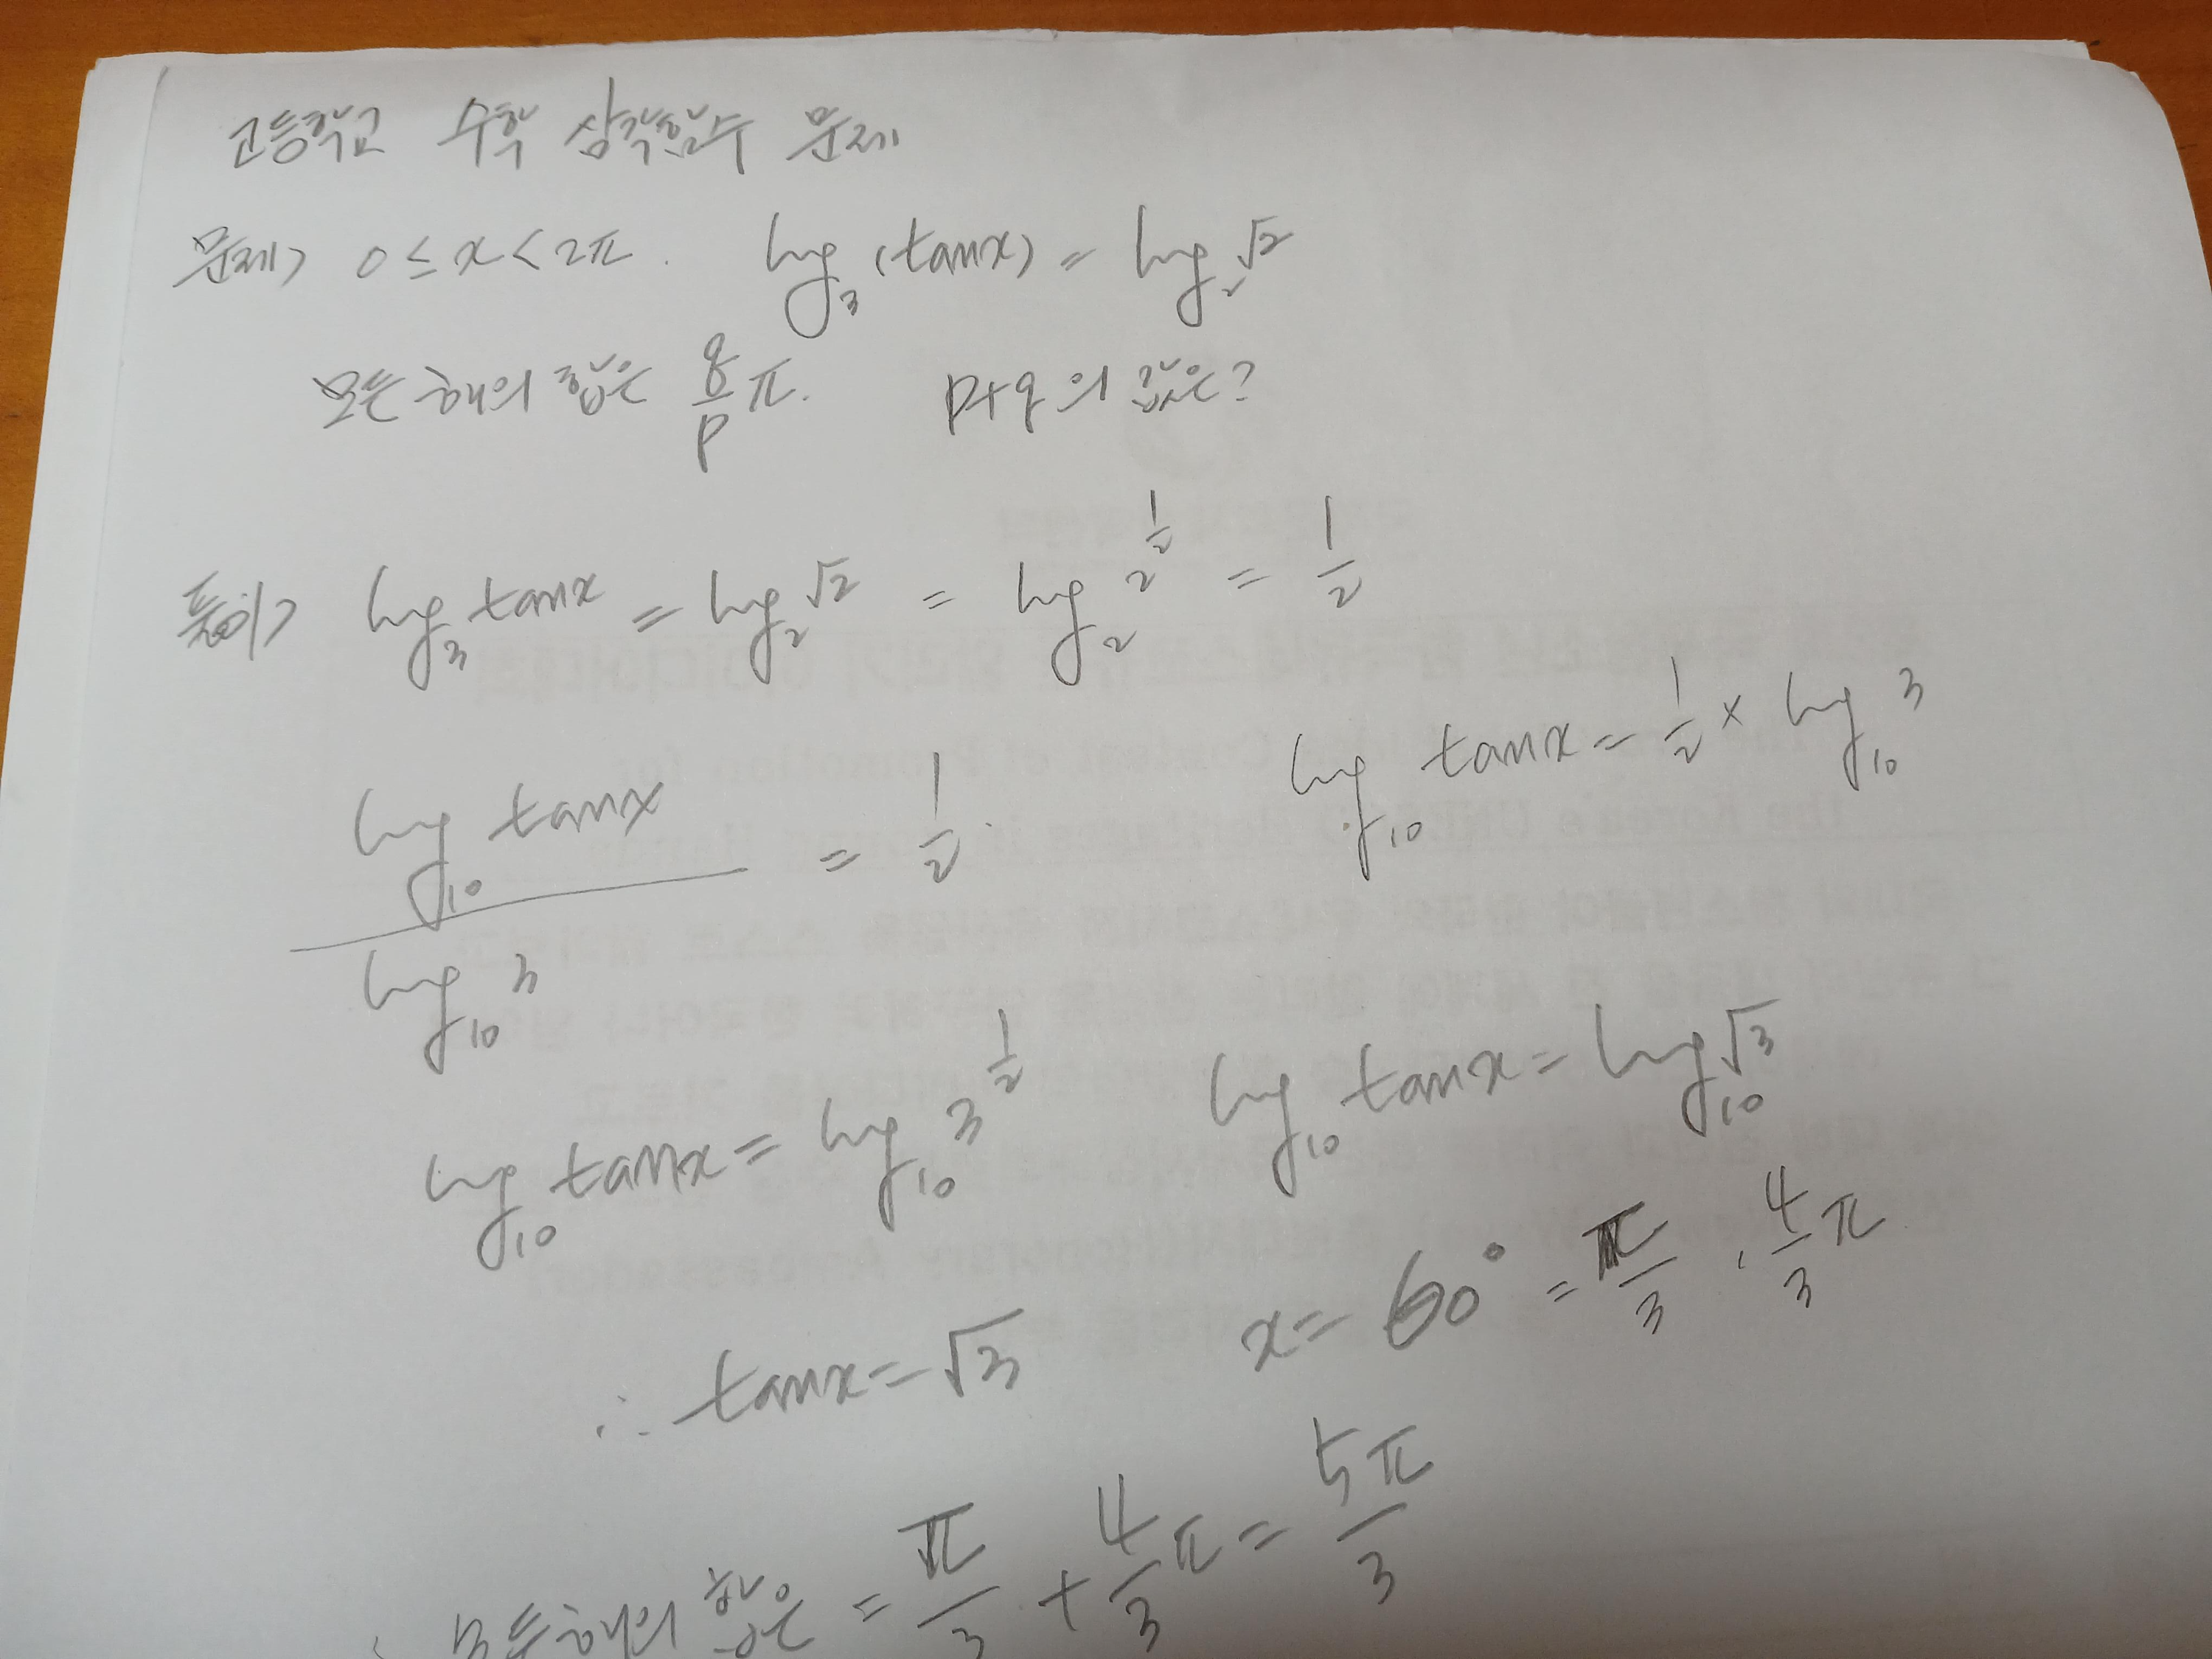 고등학교 수학 삼각함수 문제
문제> 0 ≤ x < 2π. log₃(tanx) = log₂√2
모든 해의 합은 q/p π. p+q의 값은?
풀이> log₃tanx = log₂√2 = log₂2^(1/2) = 1/2
log₁₀tanx / log₁₀3 = 1/2. log₁₀tanx = 1/2 × log₁₀3
log₁₀tanx = log₁₀3^(1/2) log₁₀tanx = log₁₀√3
∴ tanx = √3 x = 60° = π/3, 4/3 π
모든 해의 합은 = π/3 + 4/3 π = 5π/3